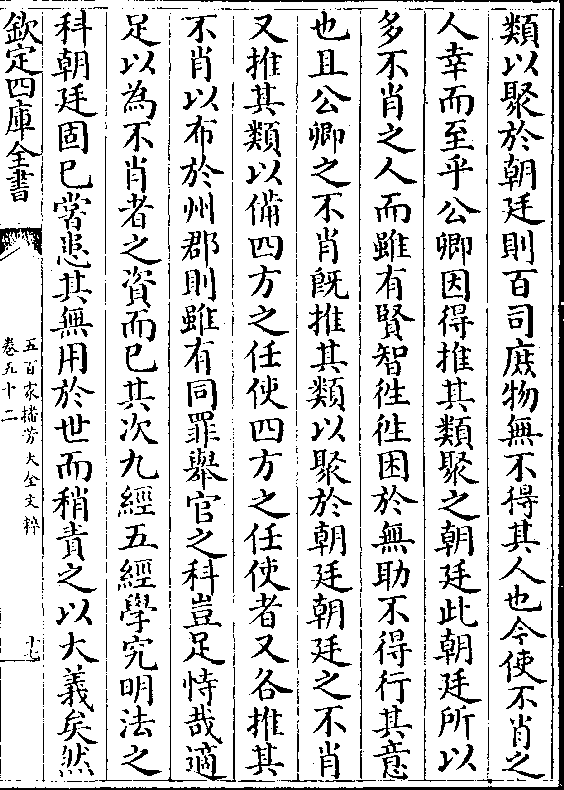 類以聚於朝廷則百司庶物無不得其人也今使不肖之
人幸而至乎公卿因得推其類聚之朝廷此朝廷所以
多不肖之人而雖有賢智徃徃困於無助不得行其意
也且公卿之不肖旣推其類以聚於朝廷朝廷之不肖
又推其類以備四方之任使四方之任使者又各推其
不肖以布於州郡則雖有同罪舉官之科豈足恃哉適
足以為不肖者之資而已其次九經五經學究明法之
科朝廷固已嘗患其無用於世而稍責之以大義矣然
欽定四庫全書
五百家播芳大全文粹
卷五十二
十七